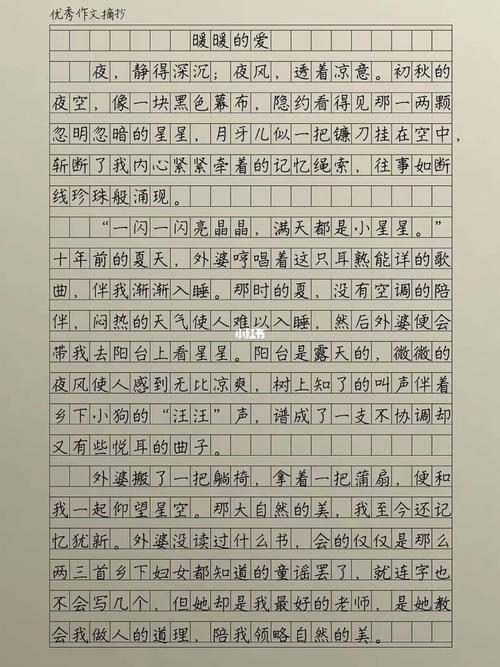 优秀作文摘抄
暖暖的爱
夜，静得深沉；夜风，透着凉意。初秋的
夜空，像一块黑色幕布，隐约看得见那一两颗
忽明忽暗的星星，月牙儿似一把镰刀挂在空中，
斩断了我内心紧紧牵着的记忆绳索，往事如断
线珍珠般涌现。
“一闪一闪亮晶晶，满天都是小星星。”
十年前的夏天，外婆哼唱着这只耳熟能详的歌
曲，伴我渐渐入睡。那时的夏，没有空调的陪
伴，闷热的天气使人难以入睡，然后外婆便会
小红书
带我去阳台上看星星。阳台是露天的，微微的
夜风使人感到无比凉爽，树上知了的叫声伴着
乡下小狗的“汪汪”声，谱成了一支不协调却
又有些悦耳的曲子。
外婆搬了一把躺椅，拿着一把蒲扇，便和
我一起仰望星空。那大自然的美，我至今还记
忆犹新。外婆没读过什么书，会的仅仅是那么
两三首乡下妇女都知道的童谣罢了，就连字也
不会写几个，但她却是我最好的老师，是她教
会我做人的道理，陪我领略自然的美。